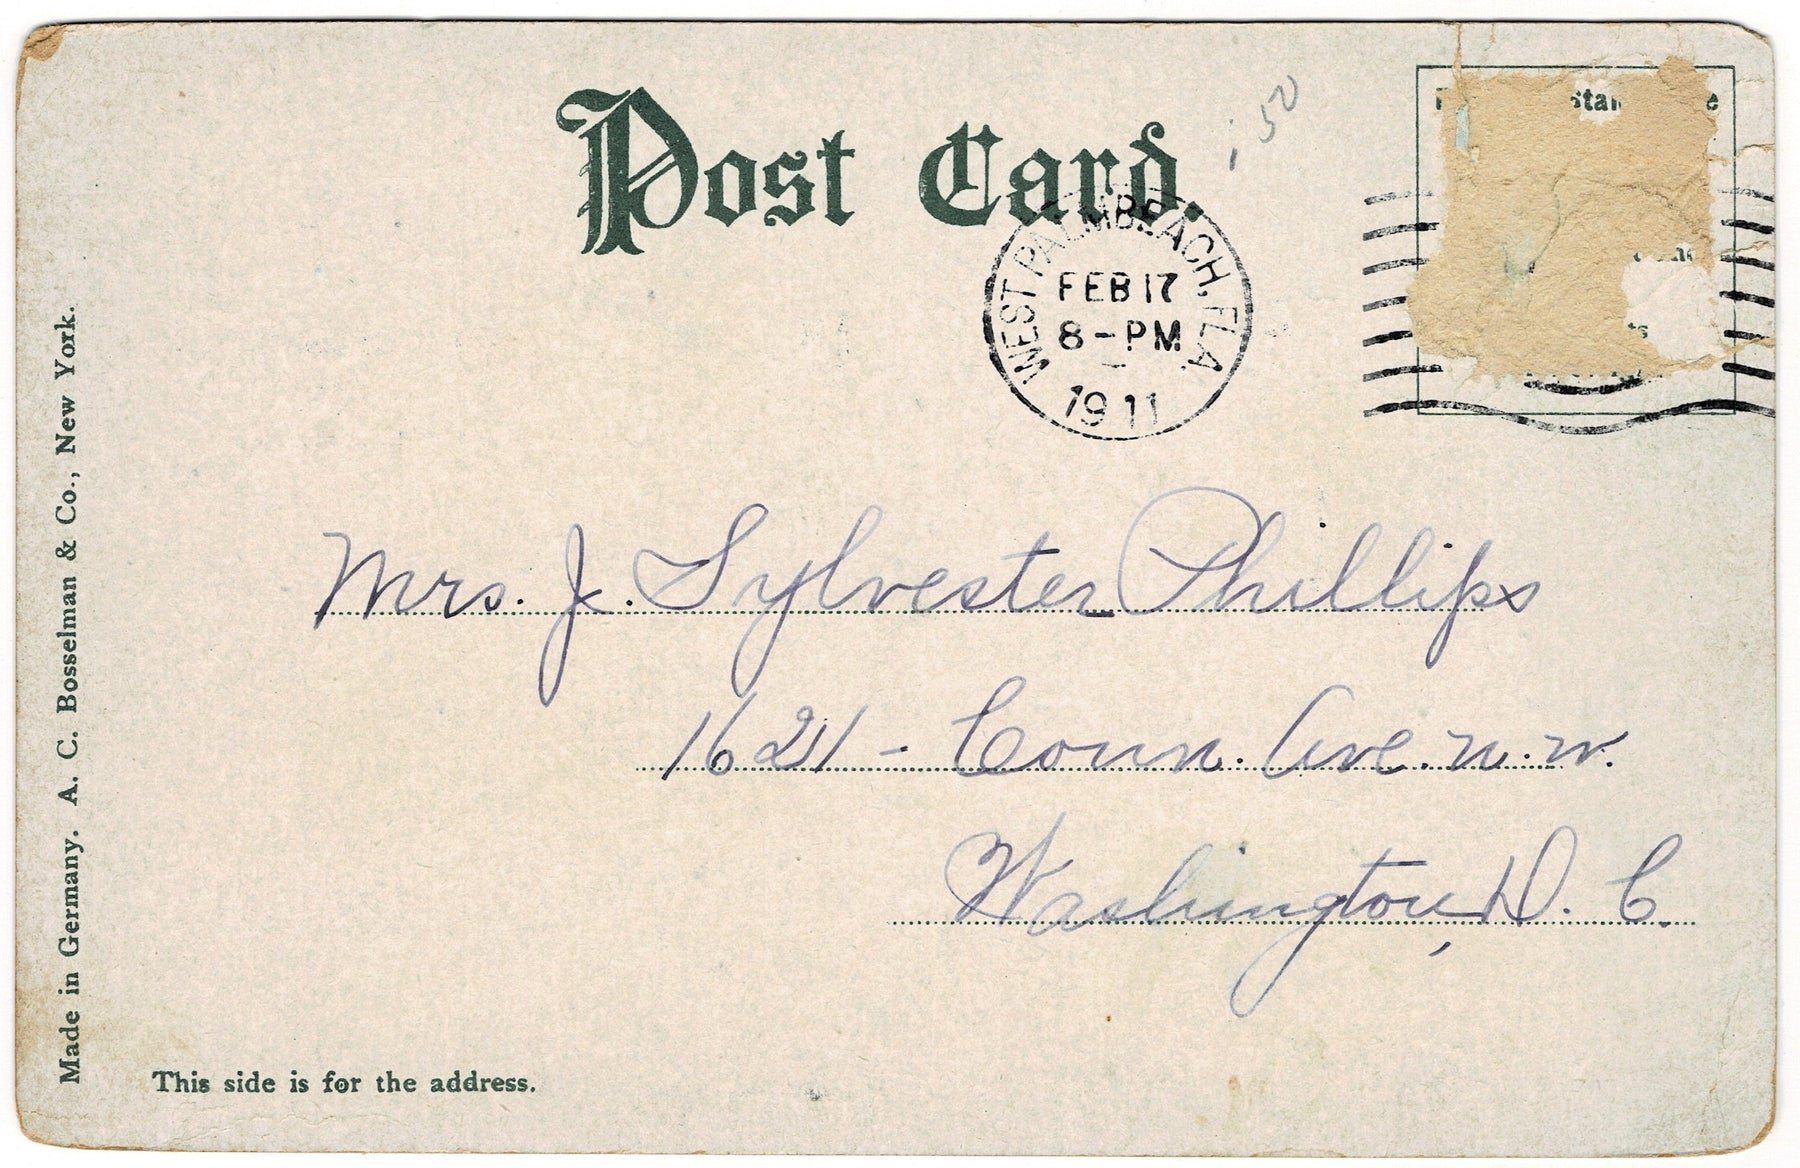 Post Card.
.50
WEST PALM BEACH, FLA.
FEB 17
8-PM
1911
Mrs. J. Sylvester Phillips
1621 - Conn. Ave. N. W.
Washington, D. C.
This side is for the address.
Made in Germany. A. C. Bosselman & Co., New York.